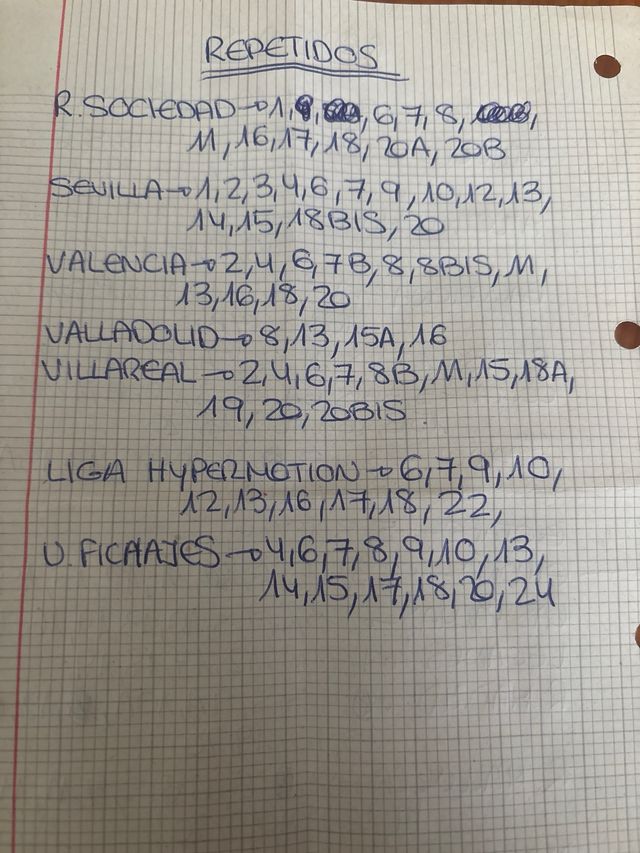 REPETIDOS
R. SOCIEDAD→1, 6, 7, 8,
11, 16, 17, 18, 20A, 20B
SEVILLA→1, 2, 3, 4, 6, 7, 9, 10, 12, 13,
14, 15, 18BIS, 20
VALENCIA→2, 4, 6, 7B, 8, 8BIS, 11,
13, 16, 18, 20
VALLADOLID→8, 13, 15A, 16
VILLAREAL→2, 4, 6, 7, 8B, 11, 15, 18A,
19, 20, 20BIS
LIGA HYPERMOTION→6, 7, 9, 10,
12, 13, 16, 17, 18, 22,
U. FICHAJES→4, 6, 7, 8, 9, 10, 13,
14, 15, 17, 18, 20, 24